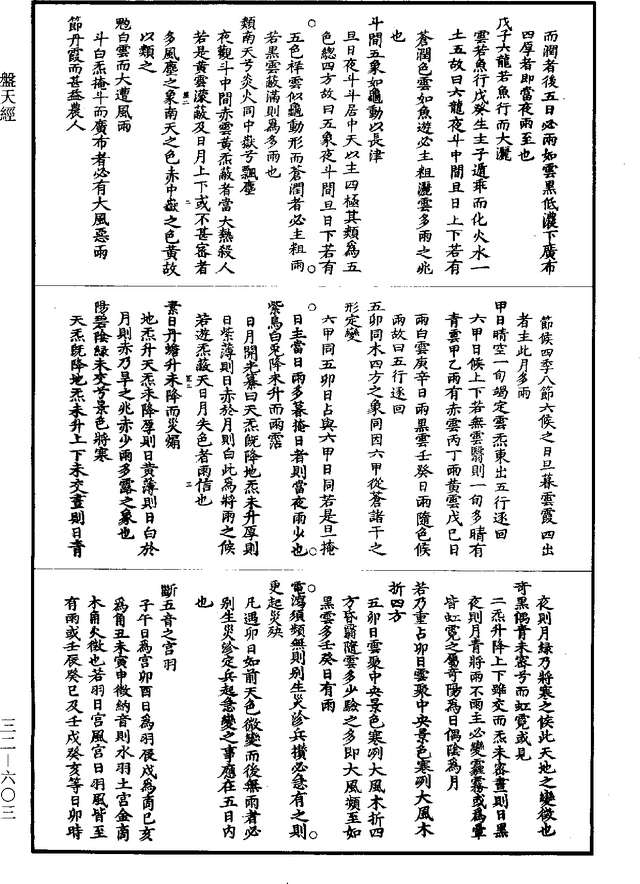 盤天經
三二—六〇三
而潤者後五日必雨如雲黑低濃下廣布
四厚者即當夜雨至也
戊子六龍若魚行而大灑
雲若魚行戊癸生主子遁乖而化火水一
土五故曰六龍夜斗中間且日上下若有
蒼潤色雲如魚遊必主粗灑雲多雨之兆
也
斗間五象如龜動以長津
旦日夜斗斗居中天以主四極其類為五
色總四方故曰五象夜斗間旦日下若有
五色祥雲似龜動形而蒼潤者必主粗雨
若黑雲蔽滿則為多雨也
類南天兮炎火同中嶽兮飄塵
夜觀斗中間赤雲黃炁蔽者當大熱殺人
若是黃雲濛蔽及日月上下或不甚審者
多風塵之象南天之色赤中嶽之色黃故
以類之
勉白雲而大遭風雨
斗白炁掩斗而廣布者必有大風惡雨
節丹霞而甚益農人
節候四季八節六候之日旦暮雲霞四出
者主此月多雨
甲日晴空一旬竭定雲炁東出五行逐回
六甲日候上下若無雲翳則一旬多晴有
青雲甲乙雨有赤雲丙丁雨黃雲戊巳日
雨白雲庚辛日雨黑雲壬癸日雨隨色候
雨故曰五行逐回
五卯同木四方之象同因六甲從蒼諸干之
形定變
六甲同五卯日占與六甲日同若是旦掩
日主當日雨多暮掩日者則當夜雨少也
紫烏白兎降來升而雨露
日月開光纂曰天炁旣降地炁未升原則
日紫薄則日赤於月則白此為將雨之候
若遊炁蔽天日月失色者雨信也
素日丹蟾升未降而災焗
地炁升天炁未降原則日黃薄則日白於
月則赤乃旱之兆赤少雨多露之象也
陽碧陰綠未交兮景色將寒
天炁旣降地炁未升上下未交晝則日青
夜則月綠乃將寒之候此天地之變徵也
奇黑偶青未審兮而虹霓或見
二炁升降上下雖交而炁未審晝則日黑
夜則月青將雨不雨主必變霾霧或為暈
皆虹霓之屬奇陽為日偶陰為月
若乃重占卯日雲聚中央景色寒冽大風木
折四方
五卯日雲聚中央景色寒冽大風木折四
方昏翳隨雲多少驗之多即大風頻至如
黑雲多壬癸日有雨
電濤須類無則别生災診兵攢必急有之則
更起災殃
凡遇卯日如前天色微變而後無雨者必
别生災診定兵起急變之事應在五日内
也
斷五音之宮羽
子午日為宮卯酉日為羽辰戌為商巳亥
為角丑未寅申徵納音則水羽土宮金商
木角火徵也若羽日宮風宮日羽風皆至
有雨或壬辰癸巳及壬戌癸亥等日卯時